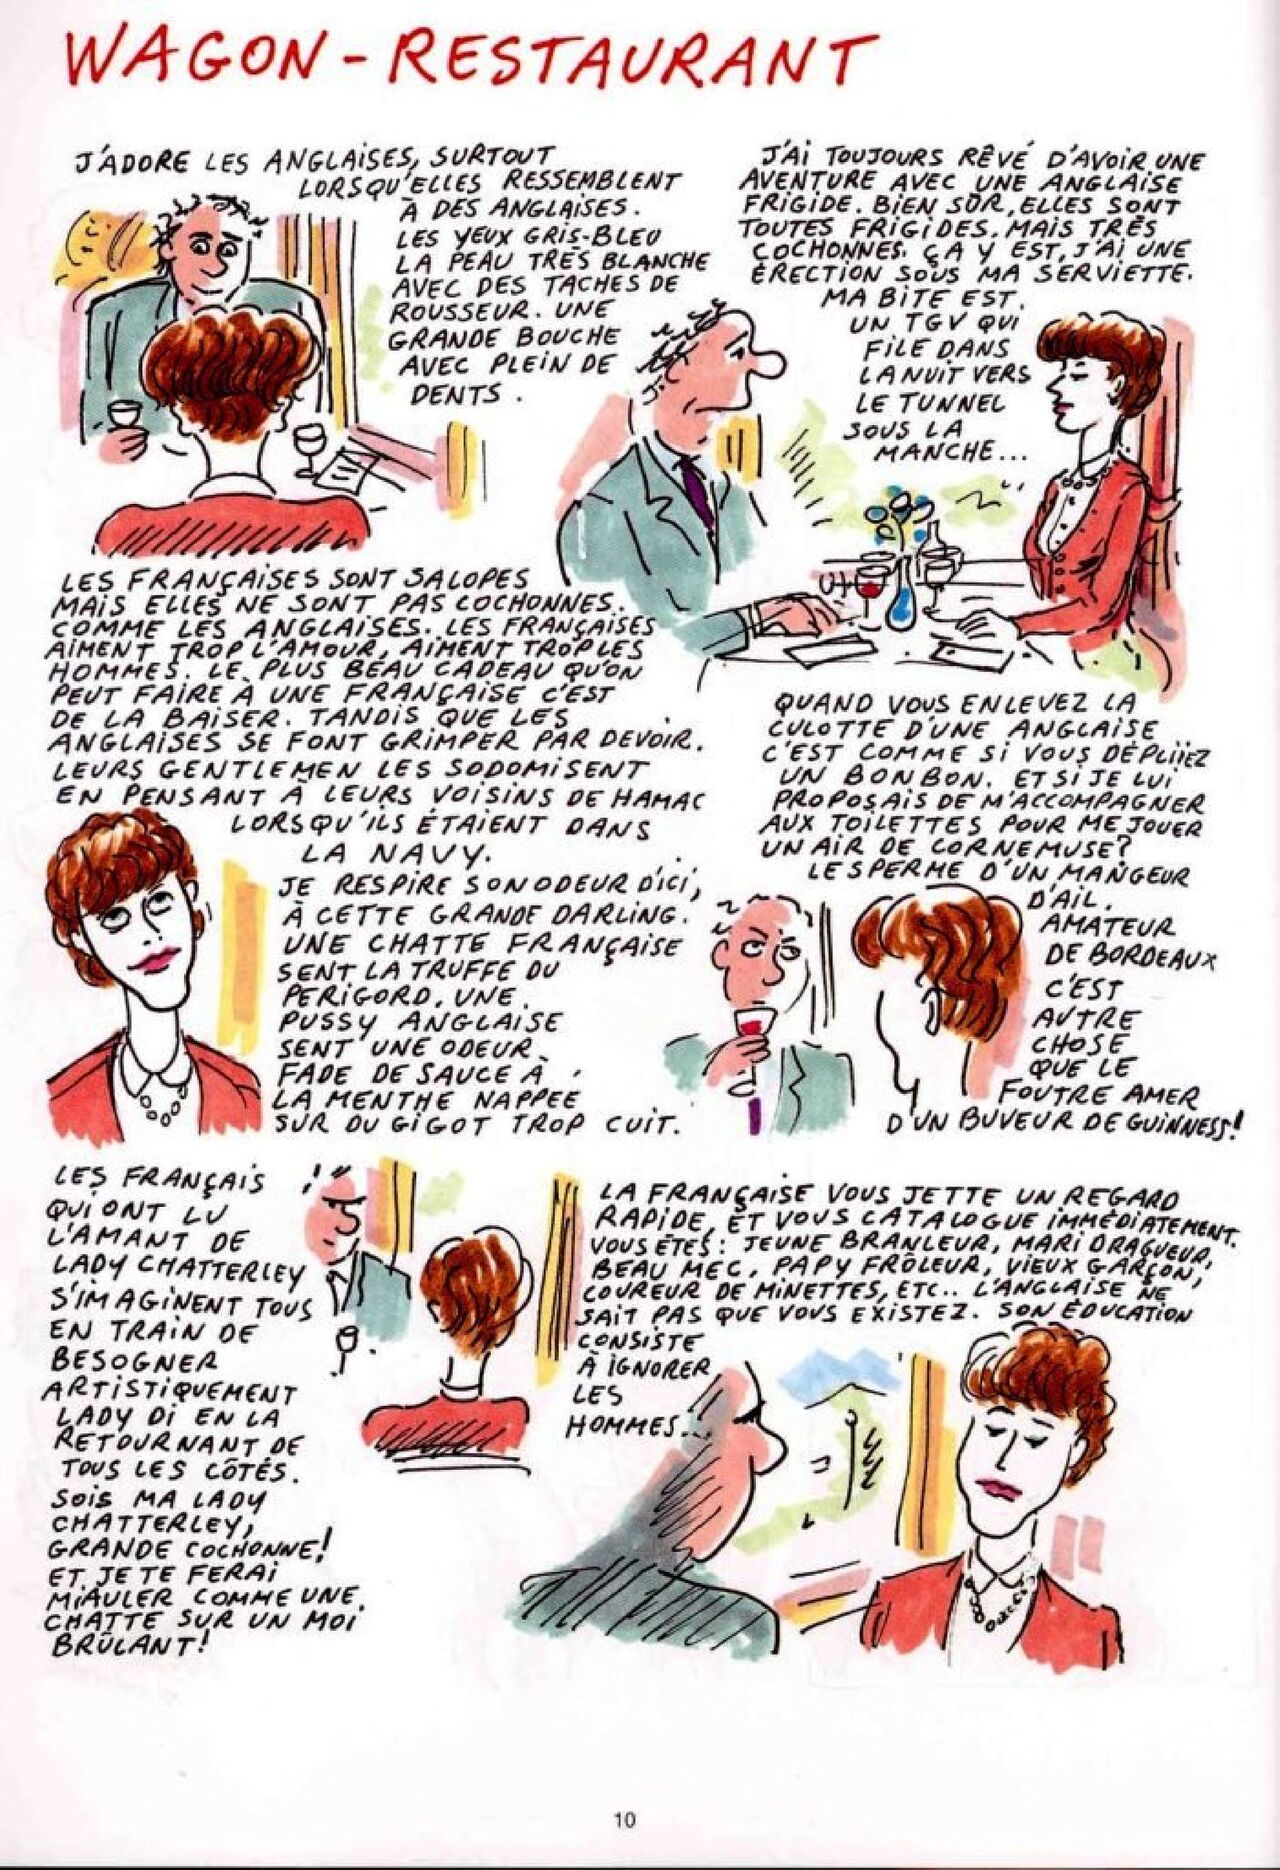 WAGON-RESTAURANT
J'ADORE LES ANGLAISES, SURTOUT
LORSQU'ELLES RESSEMBLENT
À DES ANGLAISES.
LES YEUX GRIS-BLEU
LA PEAU TRÈS BLANCHE
AVEC DES TACHES DE
ROUSSEUR. UNE
GRANDE BOUCHE
AVEC PLEIN DE
DENTS.
J'AI TOUJOURS RÊVÉ D'AVOIR UNE
AVENTURE AVEC UNE ANGLAISE
FRIGIDE. BIEN SÛR, ELLES SONT
TOUTES FRIGIDES. MAIS TRÈS
COCHONNES. ÇA Y EST, J'AI UNE
ÉRECTION SOUS MA SERVIETTE.
MA BITE EST
UN TGV QUI
FILE DANS
LA NUIT VERS
LE TUNNEL
SOUS LA
MANCHE...
LES FRANÇAISES SONT SALOPES
MAIS ELLES NE SONT PAS COCHONNES
COMME LES ANGLAISES. LES FRANÇAISES
AIMENT TROP L'AMOUR, AIMENT TROP LES
HOMMES. LE PLUS BEAU CADEAU QU'ON
PEUT FAIRE À UNE FRANÇAISE C'EST
DE LA BAISER. TANDIS QUE LES
ANGLAISES SE FONT GRIMPER PAR DEVOIR.
LEURS GENTLEMEN LES SODOMISENT
EN PENSANT À LEURS VOISINS DE HAMAC
LORSQU'ILS ÉTAIENT DANS
LA NAVY.
JE RESPIRE SON ODEUR D'ICI,
À CETTE GRANDE DARLING.
UNE CHATTE FRANÇAISE
SENT LA TRUFFE DU
PERIGORD. UNE
PUSSY ANGLAISE
SENT UNE ODEUR
FADE DE SAUCE À
LA MENTHE NAPPEE
SUR DU GIGOT TROP CUIT.
QUAND VOUS ENLEVEZ LA
CULOTTE D'UNE ANGLAISE
C'EST COMME SI VOUS DÉPLIIEZ
UN BONBON. ET SI JE LUI
PROPOSAIS DE M'ACCOMPAGNER
AUX TOILETTES POUR ME JOUER
UN AIR DE CORNEMUSE?
LE SPERME D'UN MANGEUR
D'AIL.
AMATEUR
DE BORDEAUX
C'EST
AUTRE
CHOSE
QUE LE
FOUTRE AMER
D'UN BUVEUR DE GUINNESS!
LES FRANÇAIS
QUI ONT LU
L'AMANT DE
LADY CHATTERLEY
S'IMAGINENT TOUS
EN TRAIN DE
BESOGNER
ARTISTIQUEMENT
LADY DI EN LA
RETOURNANT DE
TOUS LES CÔTÉS.
SOIS MA LADY
CHATTERLEY,
GRANDE COCHONNE!
ET JE TE FERAI
MIAULER COMME UNE
CHATTE SUR UN MOI
BRÛLANT!
LA FRANÇAISE VOUS JETTE UN REGARD
RAPIDE, ET VOUS CATALOGUE IMMÉDIATEMENT.
VOUS ÊTES: JEUNE BRANLEUR, MARI DRAGUEUR,
BEAU MEC, PAPY FRÔLEUR, VIEUX GARÇON,
COUREUR DE MINETTES, ETC.. L'ANGLAISE NE
SAIT PAS QUE VOUS EXISTEZ. SON ÉDUCATION
CONSISTE
À IGNORER
LES
HOMMES...
10